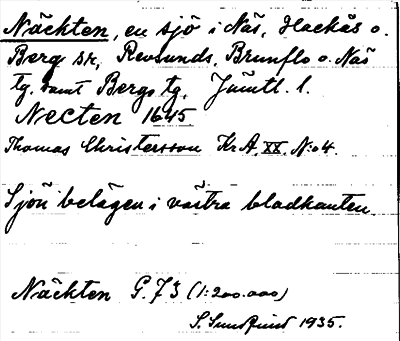 Näckten, en sjö i Näs, Hackås o.
Bergs sr, Revsunds, Brunflo o. Näs
tg. samt Bergs tg, Jämtl. l.
Necten 1645
Thomas Christersson Kr.A. XX. N:o 4.
Sjön belägen i västra bladkanten.
Näckten G. 73 (1:200.000)
S. Sundqvist 1935.